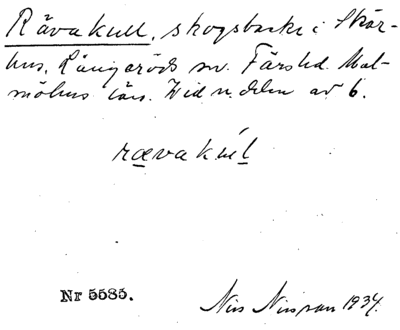 Rävakull, skogsbacke i Skår-
hus, Långaröds sn. Färs hd. Mal-
möhus län. Vid n. delen av 6.
rævakul
Nr 5585.
Nils Nilsson 1934.